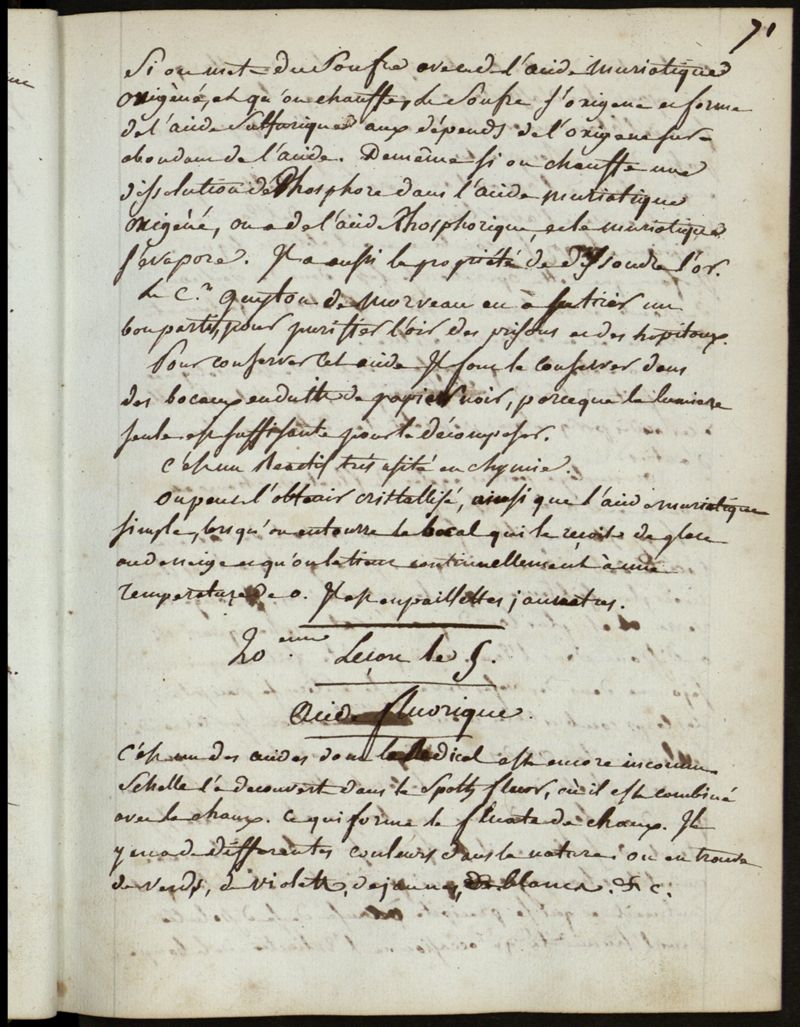 71
Si on met du Soufre avec de l'acide Muriatique
Oxigèné, et qu'on chauffe, le Soufre s'oxigene et forme
de l'acide Sulfurique aux dépends de l'oxigene sur-
abondant de l'acide. Demême si on chauffe une
dissolution de Phosphore dans l'acide muriatique
Oxigèné, on a de l'acide Phosphorique, et le muriatique
s'evapore. Il a aussi la propriété de dissoudre l'or.
Le C.n Guyton de Morveau en a sû tirer un
bon parti, pour purifier l'air des prisons et des hopitaux.
Pour conserver cet acide Il faut le conserver dans
des bocaux enduits de papier noir, parceque la lumiere
seule est suffisante pour le décomposer.
C'est un Reactif très usité en chymie.
On peut l'obtenir cristallisé, ainsi que l'acide muriatique
simple, lorsqu'on entourre le bocal qui le recoit de glace
ou de neige et qu'on le tient continuellement à une
temperature de 0. Il est en paillettes jaunatres.
20.eme Leçon le 5.
Acide fluorique.
C'est un des acides dont le Radical est encore inconnu
Schelle l'a decouvert dans le Spath fluor, où il est combiné
avec la chaux. Ce qui forme le fluate de chaux. Il
y en a de differentes couleurs dans la nature: on en trouve
de verds, de violets, de jaunes, de blancs. &c.